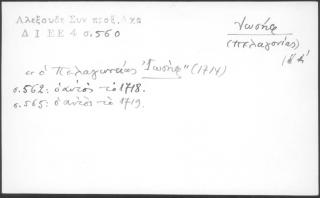 Αλεξουδη Συν προξ. Αχα
Δ Ι ΕΕ 4 σ.560
Ἰωσήφ
(Πελαγονίας)
"ὁ Πελαγωνείας Ἰωσήφ" (1714)
σ.562: ὁ αὐτὸς τὸ 1718.
σ.565: ὁ αὐτὸς τὸ 1719.